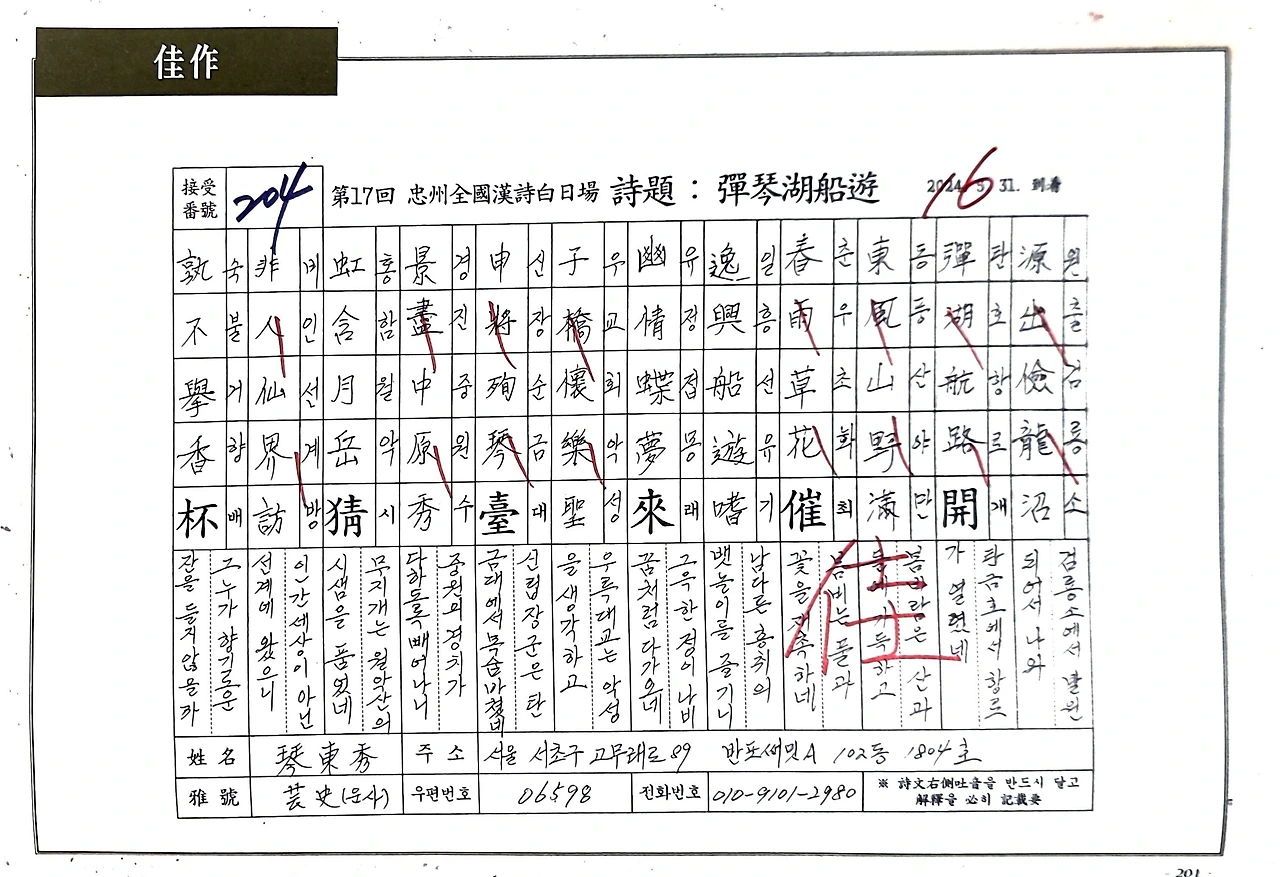 佳作
接受番號
204
第17回 忠州全國漢詩白日場 詩題 : 彈琴湖船遊
2024. 5. 31. 到着
16
源出儉龍沼
원출검룡소
彈湖航路開
탄호항로개
東風山野滿
동풍산야만
春雨草花催
춘우초화최
逸興船遊嗜
일흥선유기
幽情蝶夢來
유정접몽래
于橋懷樂聖
우교회악성
申將殉琴臺
신장순금대
景盡中原秀
경진중원수
虹含月岳猜
홍함월악시
非人仙界訪
비인선계방
孰不擧香杯
숙불거향배
검룡소에서 발원
되어서 나와
탄금호에서 항로
가 열렸네
봄바람은 산과
들에 가득하고
봄비는 풀과
꽃을 재촉하네
佳
남다른 흥취의
뱃놀이를 즐기니
그윽한 정이 나비
꿈처럼 다가오네
우륵대교는 악성
을 생각하고
신립장군은 탄
금대에서 목숨 바쳤네
중원의 경치가
다하도록 빼어나니
무지개는 월악산의
시샘을 품었네
인간세상이 아닌
선계에 왔으니
그 누가 향기로운
잔을 들지 않을까
姓名 琴東秀 주소 서울 서초구 고무래로 89 반포써밋A 102동 1804호
雅號 芸史(운사) 우편번호 06598 전화번호 010-9101-2980
※ 詩文右側吐音을 반드시 달고
解釋을 必히 記載要
201